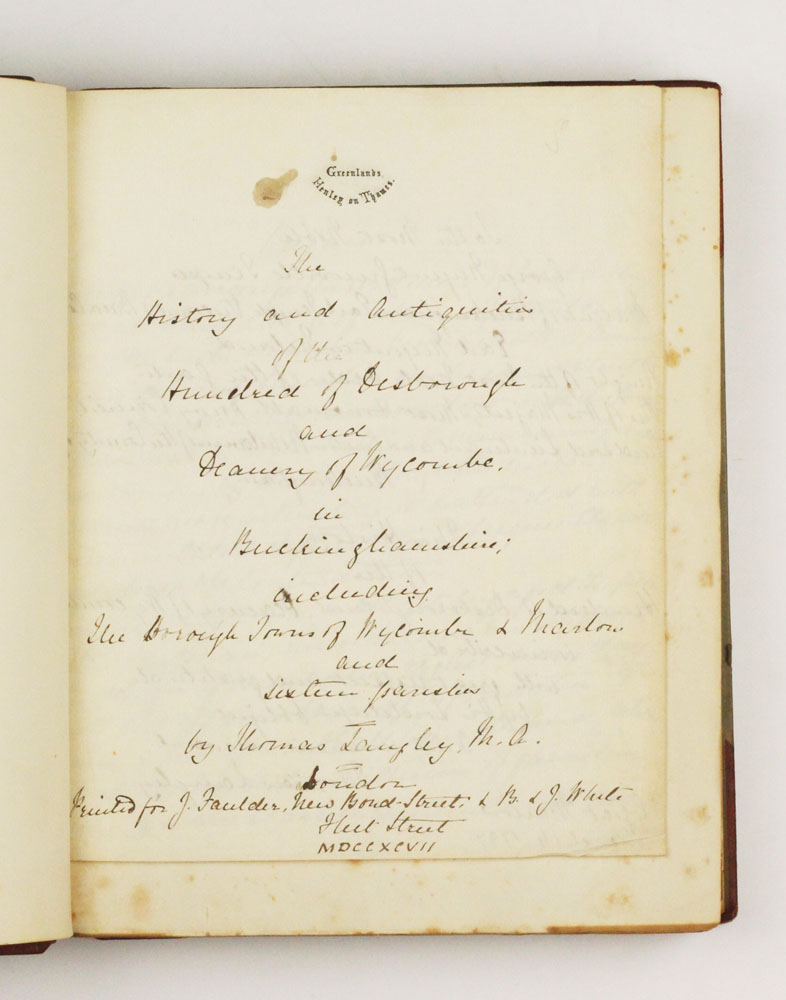 Greenlands
Henley on Thames.
The
History and Antiquities
of the
Hundred of Desborough
and
Deanery of Wycombe.
in
Buckinghamshire;
including
The Borough Towns of Wycombe & Marlow
and
sixteen parishes
by Thomas Langley, M.A.
London
Printed for J. Faulder, New Bond-Street; & B. & J. White
Fleet Street
MDCCXCVII